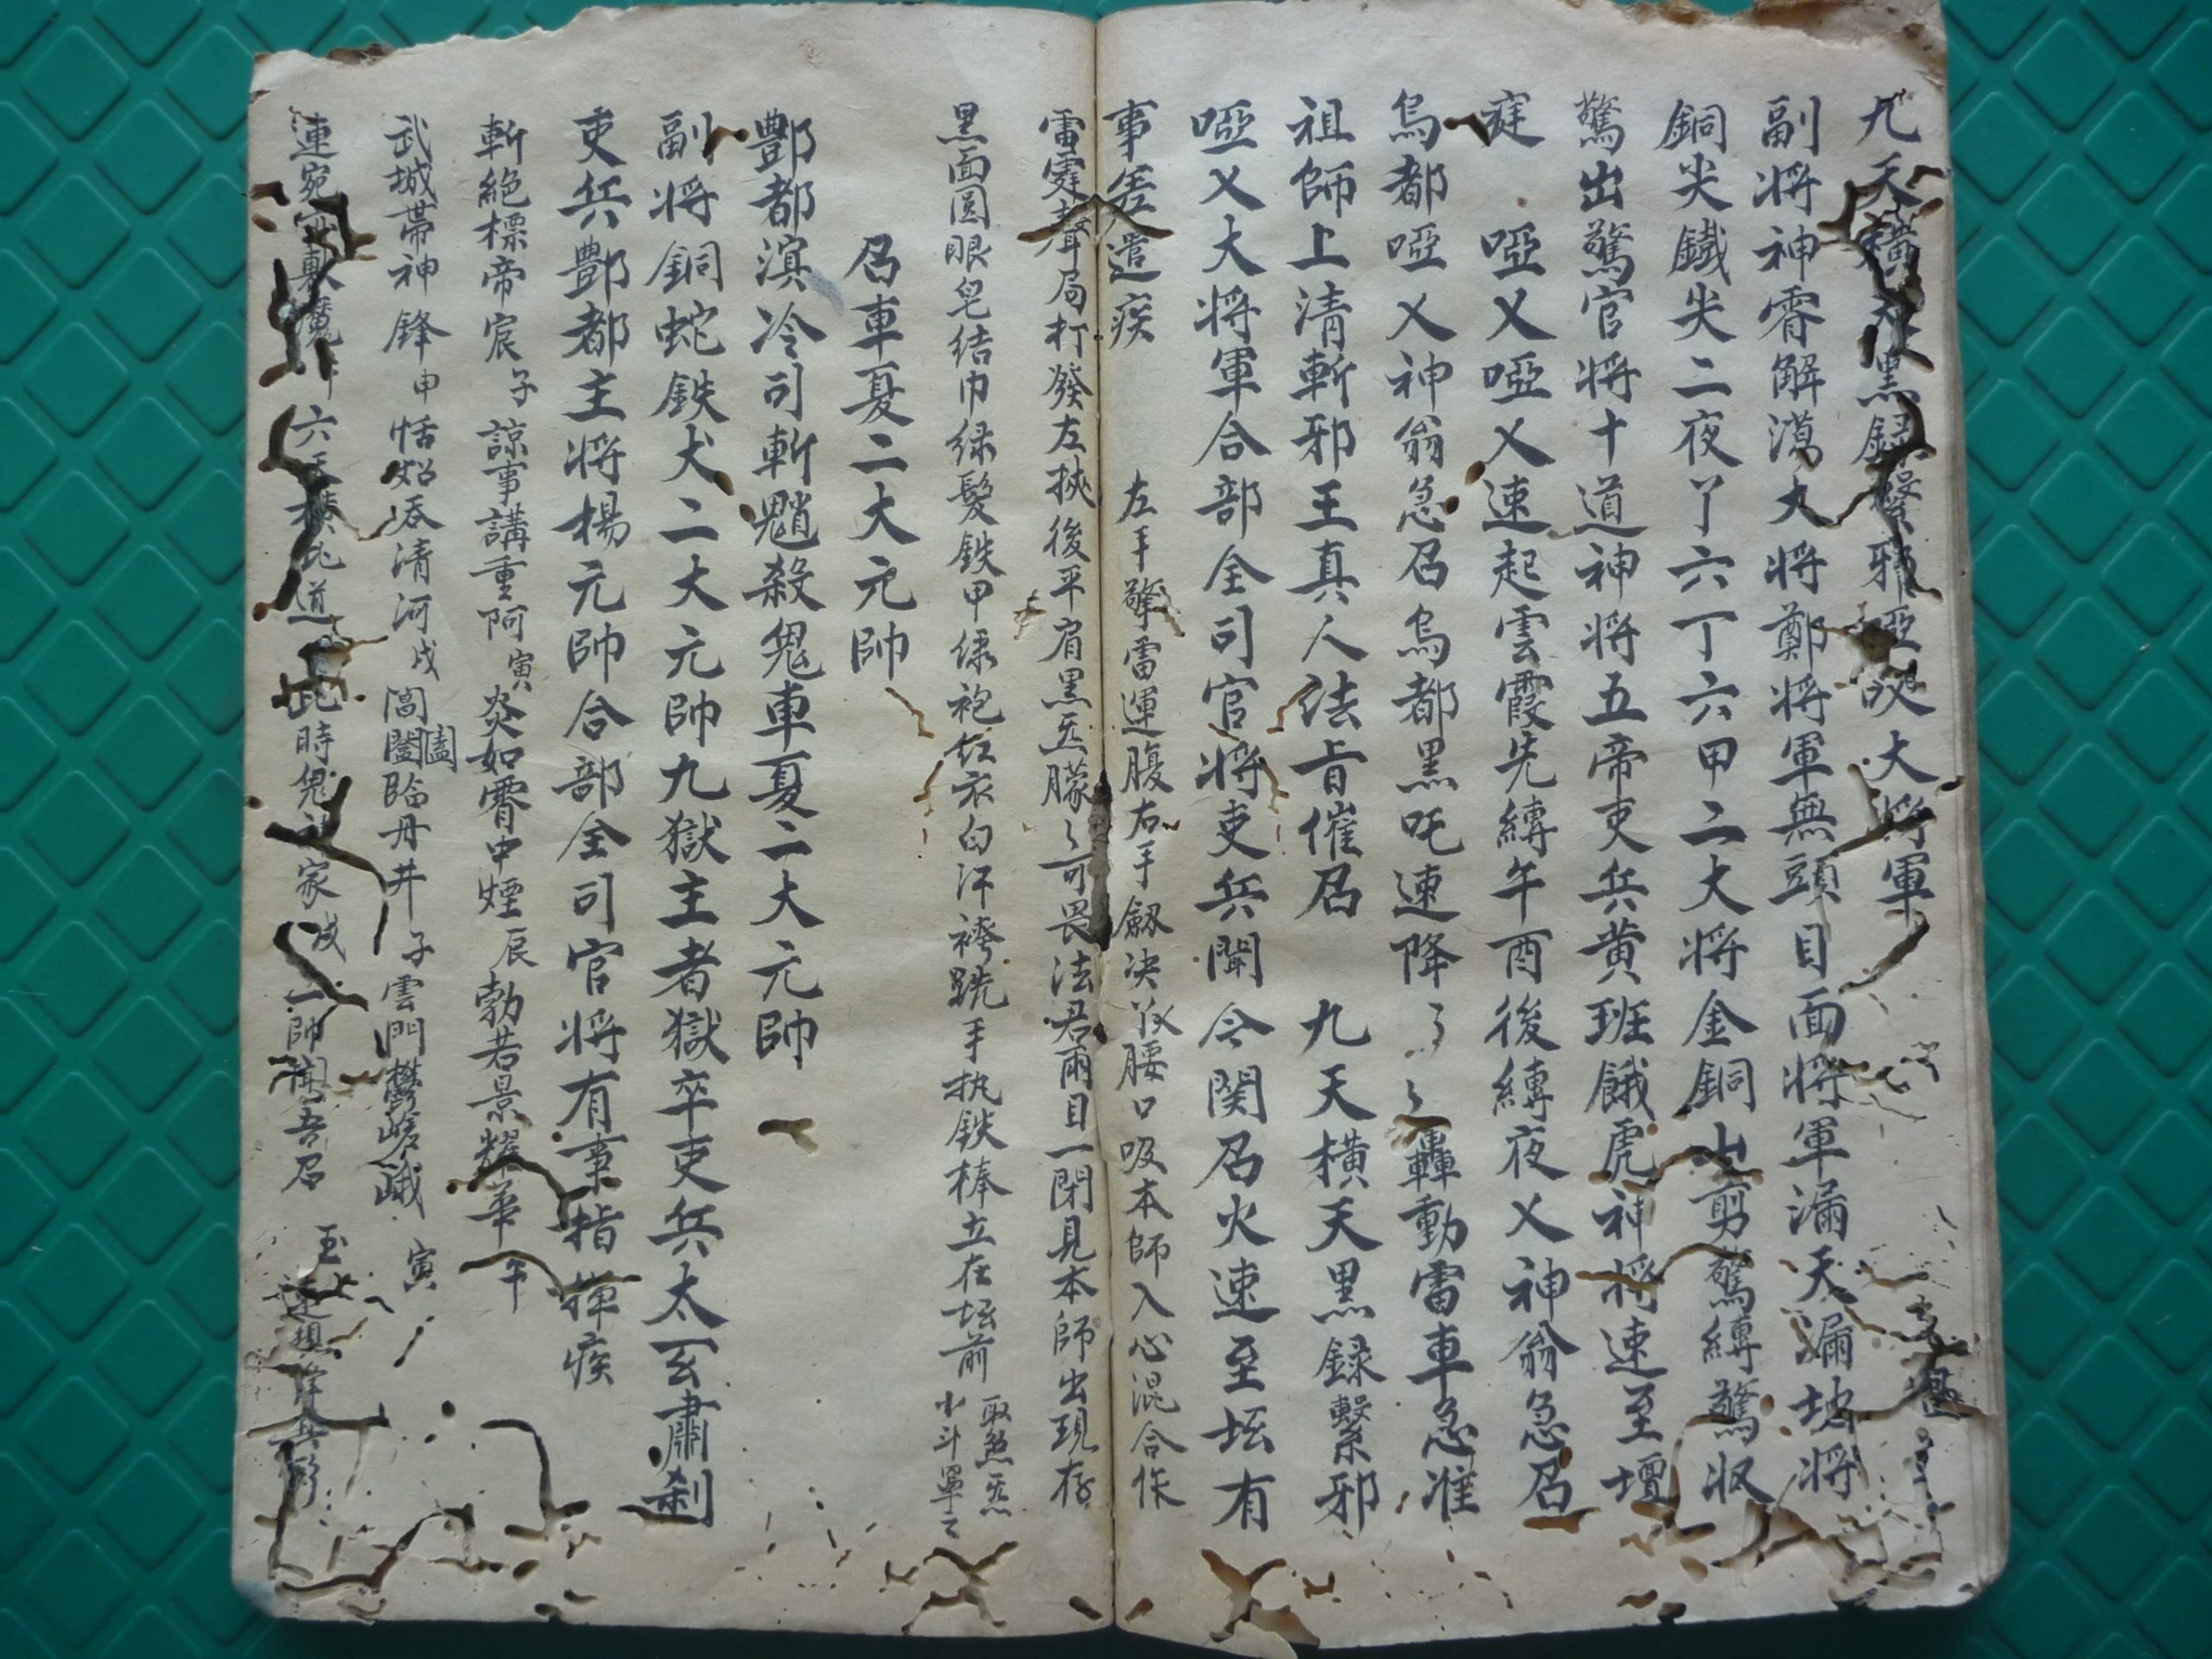 九天横天黑録繫邪啞乂大將軍
副将神霄解瀉大将鄭将軍無頭目面将軍漏天漏地将
銅尖鐵尖二夜丫六丁六甲二大将金銅山剪驚縛驚収
驚出驚官将十道神将五帝吏兵黄班餓虎神将速至壇
寔 啞乂啞乂速起雲霞先縛午酉後縛夜乂神翁急召
烏都啞乂神翁急召烏都黑吒速降了了〻轟動雷車急准
祖師上清斬邪王真人法㫖催召 九天横天黑録繫邪
啞乂大将軍合部全司官将吏兵聞今関召火速至坛有
事差遣疾 左手擎雷運腹右手劔决叉腰口吸本師入心混合作
雷霆聲局打發左挾後平肩黑炁朦〻可畏法君兩目一閉見本師出現存
黑面圆眼皂結巾緑髮鉄甲緑袍红衣白汗袴跣手执鉄棒立在坛前 取煞炁小斗罩之
召車夏二大元帥
酆都滇冷司斬魈殺鬼車夏二大元帥
副将銅蛇鉄犬二大元帥九獄主者獄卒吏兵太玄肅剎
吏兵酆都主将楊元帥合部全司官将有事指揮疾
斬絶標帝宸子諒事講重阿寅炎如霄中煙辰勃若景耀華午
武城帯神鋒申恬㛃吞清河戌閶闔闔臨丹井子雲門欝嵯峨寅
連宛 魔 六天横此道 此時鬼 家戌 一帥聞吾召 玉